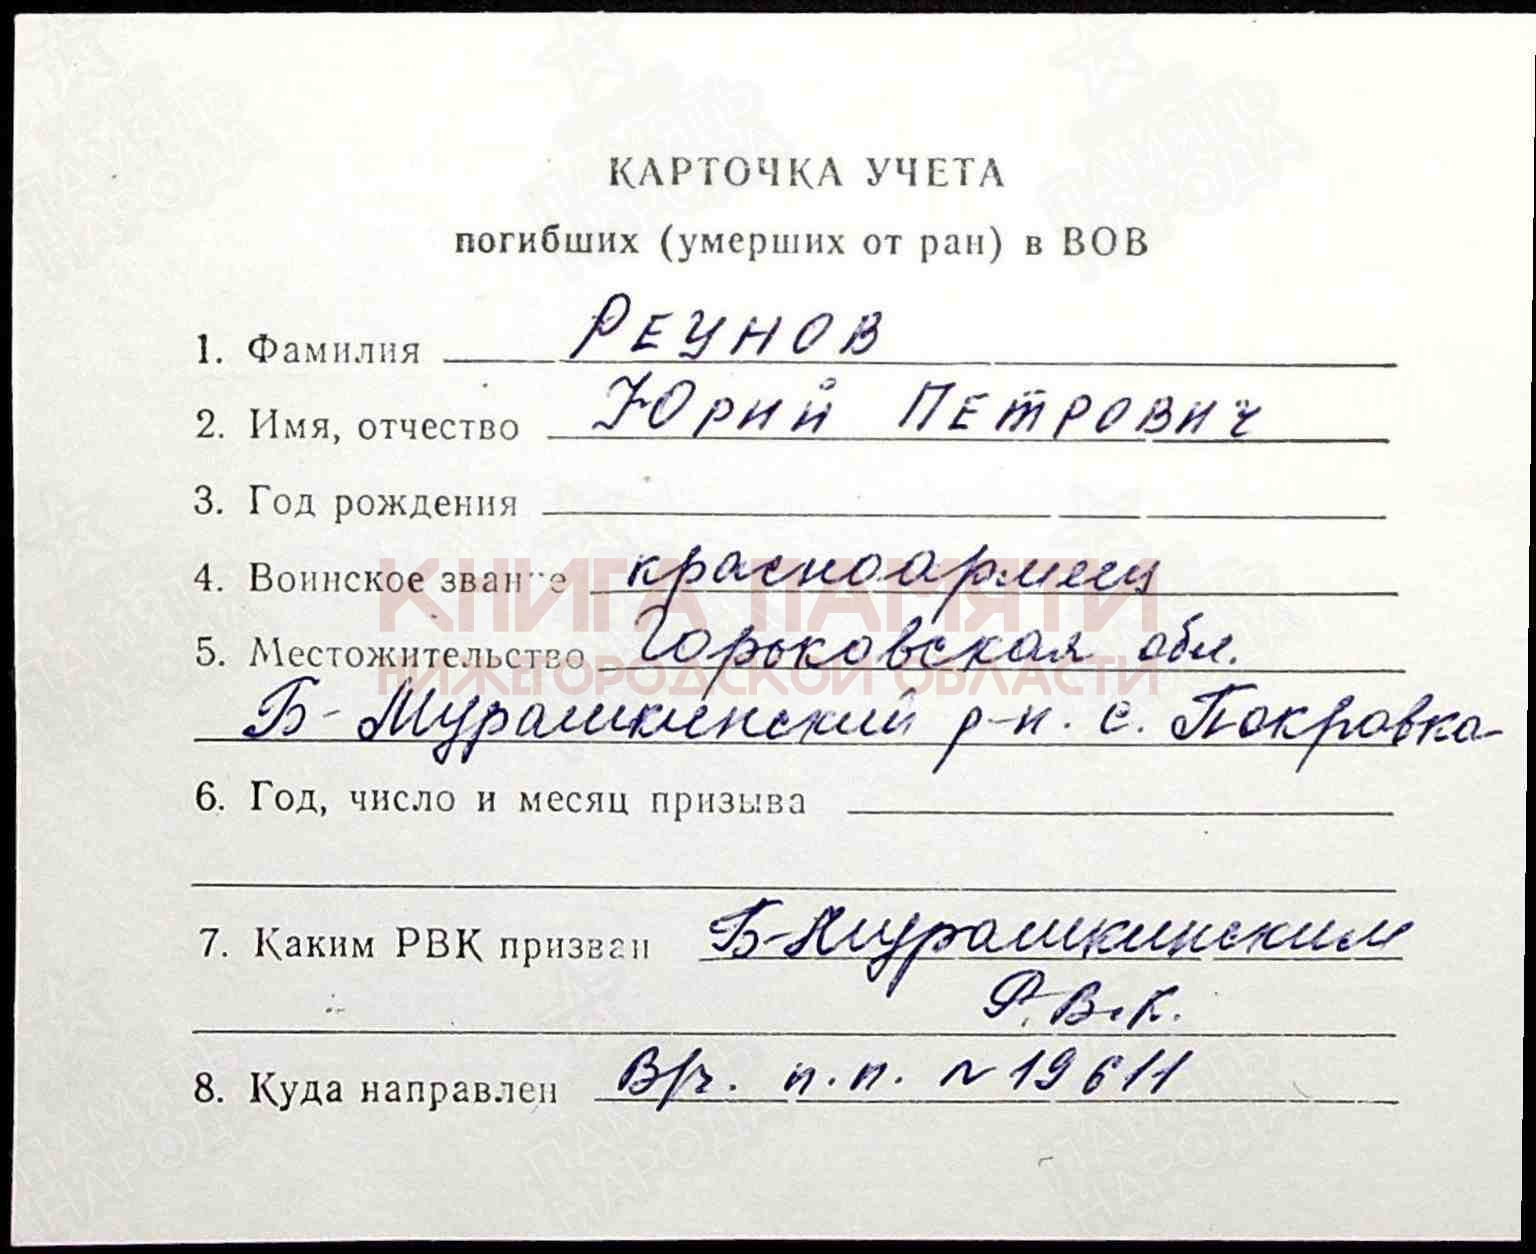 КАРТОЧКА УЧЕТА
погибших (умерших от ран) в ВОВ
1. Фамилия РЕУНОВ
2. Имя, отчество Юрий Петрович
3. Год рождения
4. Воинское звание красноармеец
КНИГА ПАМЯТИ
5. Местожительство Горьковская обл.
НИЖЕГОРОДСКОЙ ОБЛАСТИ
Б-Мурашкинский р-н. с. Покровка
6. Год, число и месяц призыва
7. Каким РВК призван Б-Мурашкинским
Р.В.К.
8. Куда направлен В/ч. п.п. N 19611
ПАМЯТЬ
НАРОДА